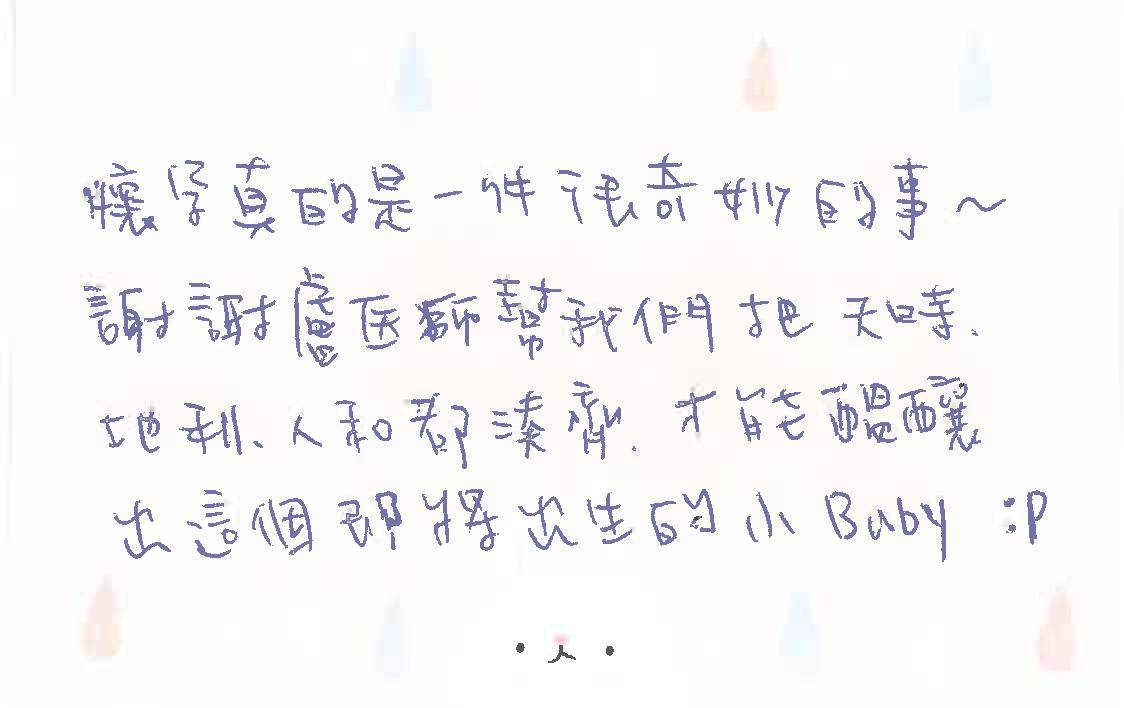 懷孕真的是一件很奇妙的事~
謝謝盧医師幫我們把天時、
地利、人和都湊齊.才能醞釀
出這個即將出生的小Baby :P